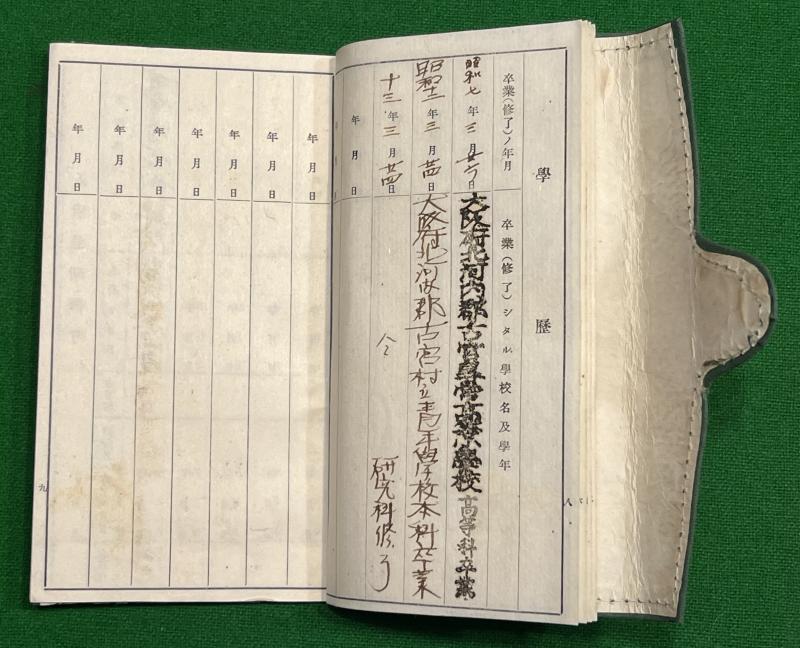 學歷
卒業(修了)ノ年月 卒業(修了)シタル學校名及學年
昭和七年三月廿六日 大阪府北河内郡古宮尋常高等小學校高等科卒業
昭和十二年三月廿四日 大阪府北河内郡古宮村立青年學校本科卒業
十三年三月廿四日 仝 研究科修了
年月日
年月日
年月日
年月日
年月日
年月日
年月日
年月日
八
九